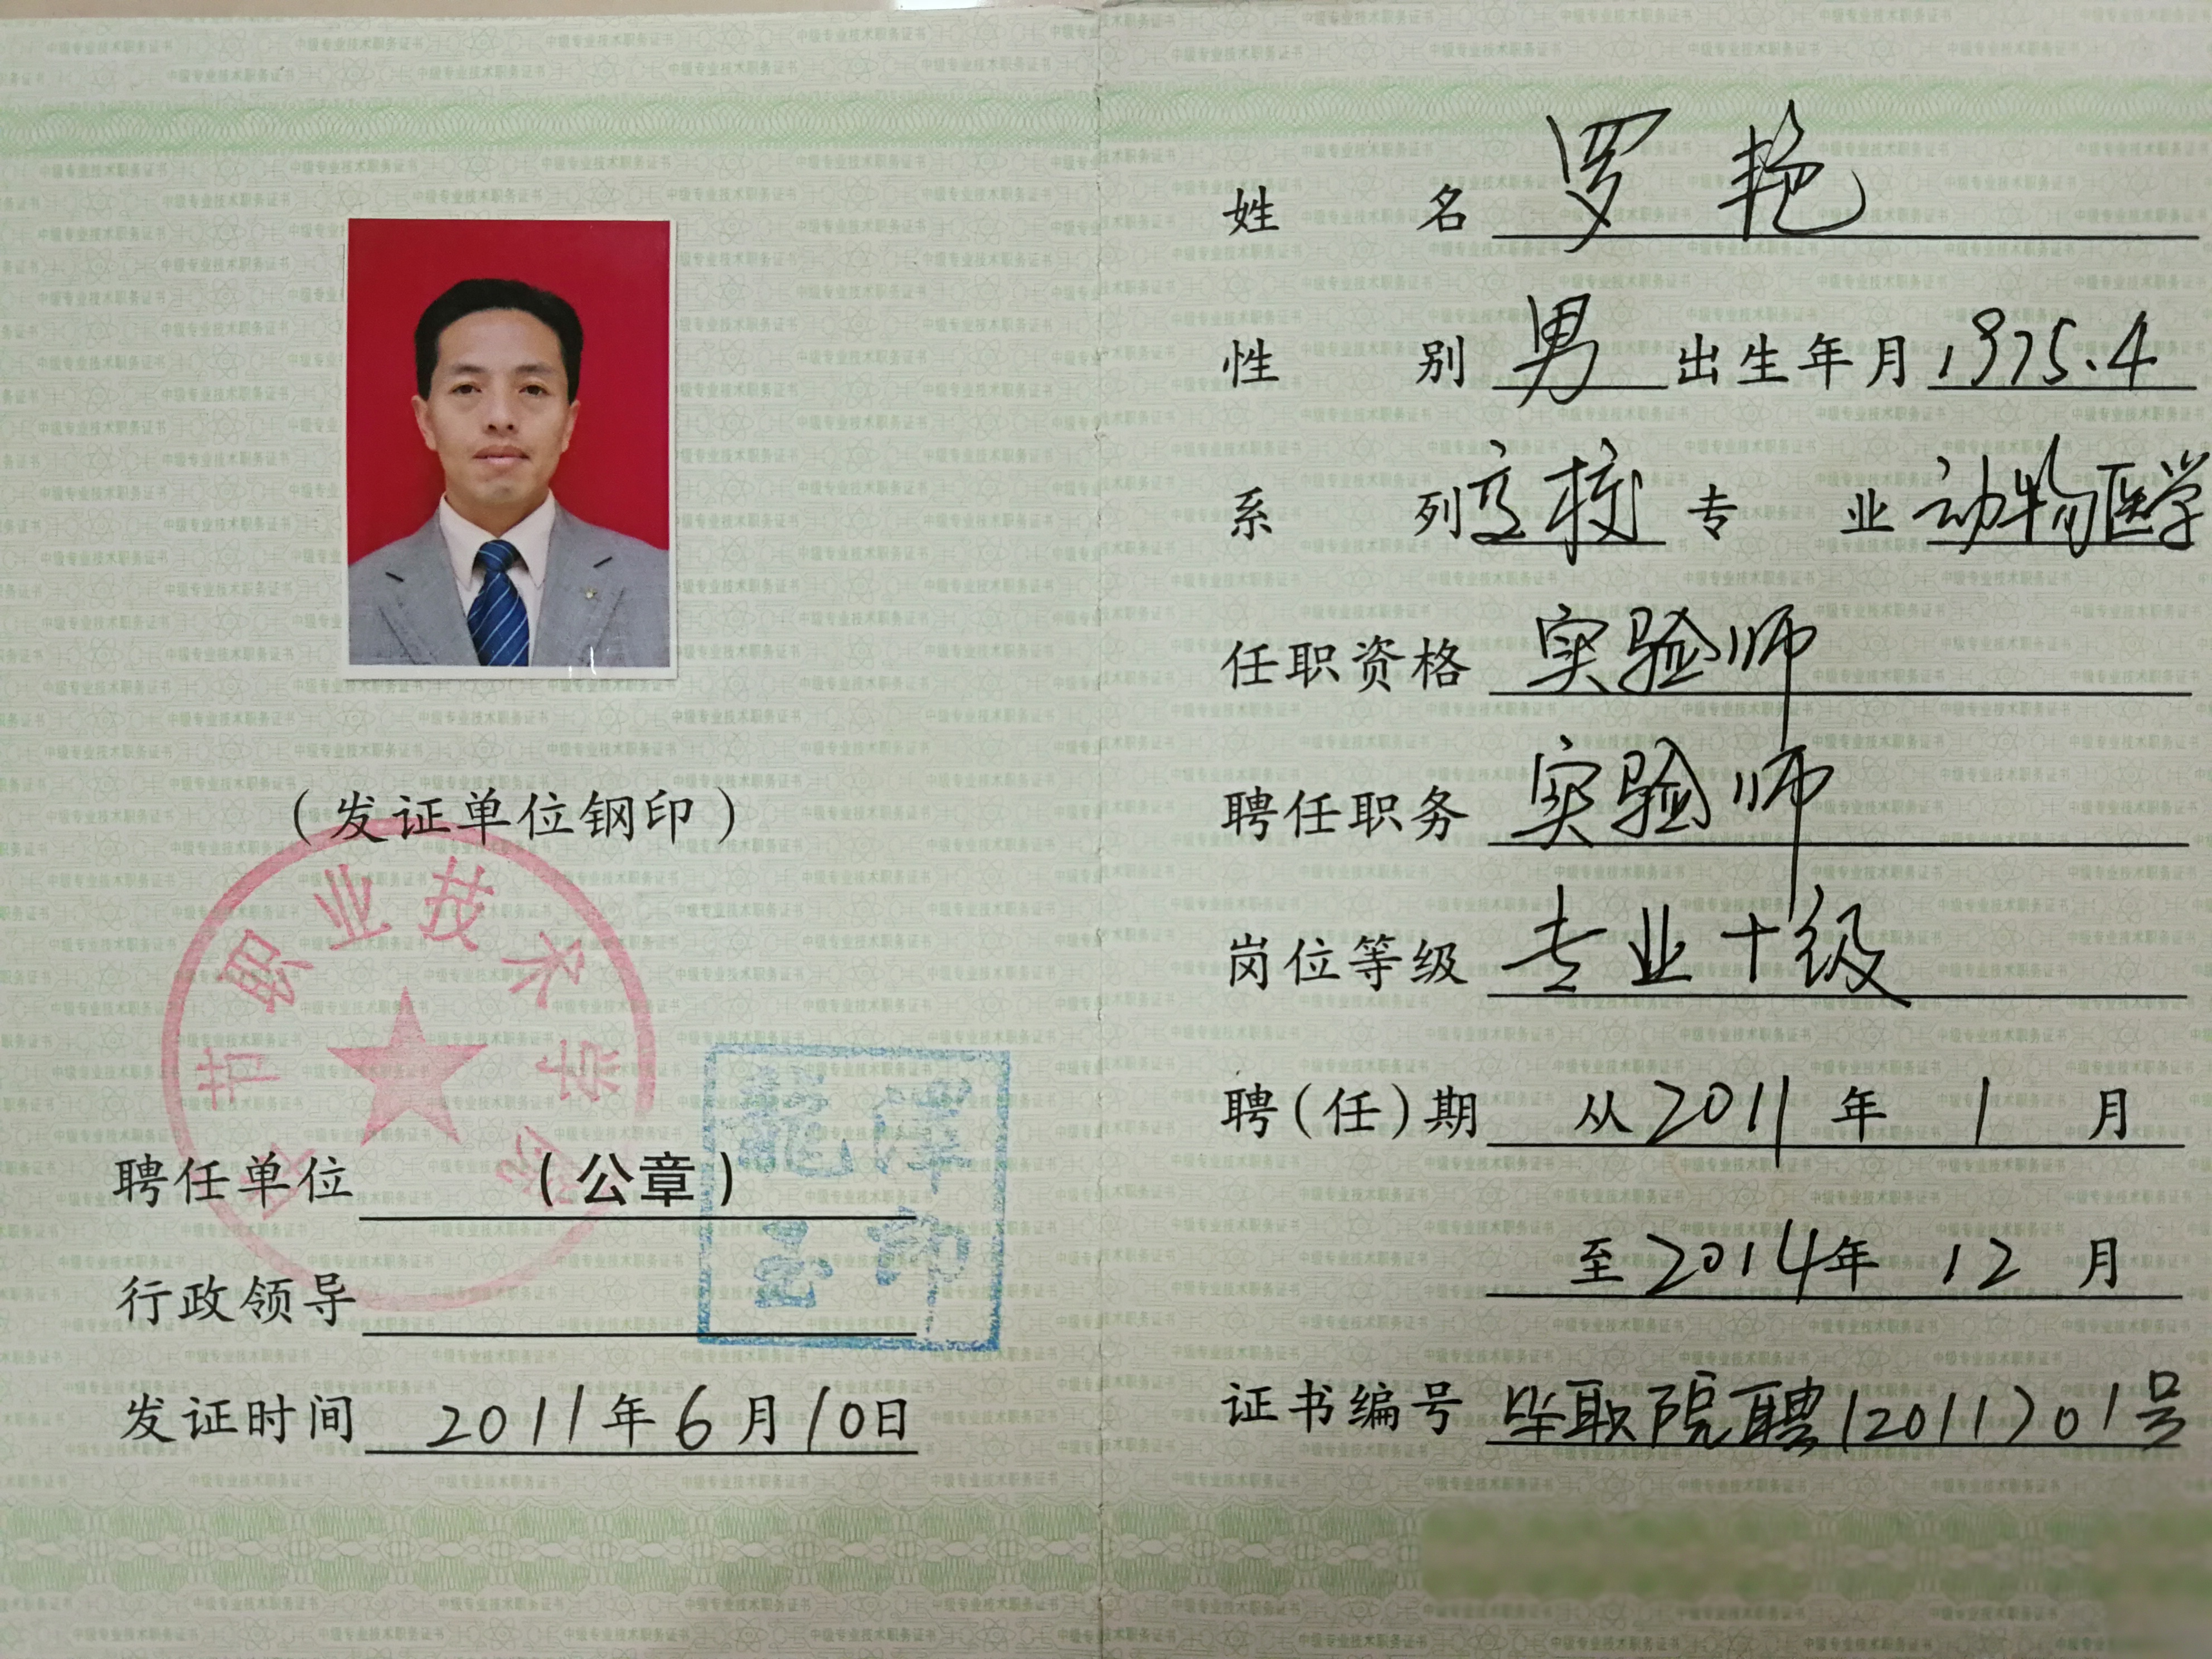 (发证单位钢印)
毕节职业技术学院
聘任单位 (公章)
行政领导
龙泽玉印
发证时间 2011年6月10日
姓名 罗艳
性别 男 出生年月 1975.4
系列 高校 专业 动物医学
任职资格 实验师
聘任职务 实验师
岗位等级 专业十级
聘(任)期 从2011年1月
至2014年12月
证书编号 毕职院聘(2011)01号
中级专业技术职务证书